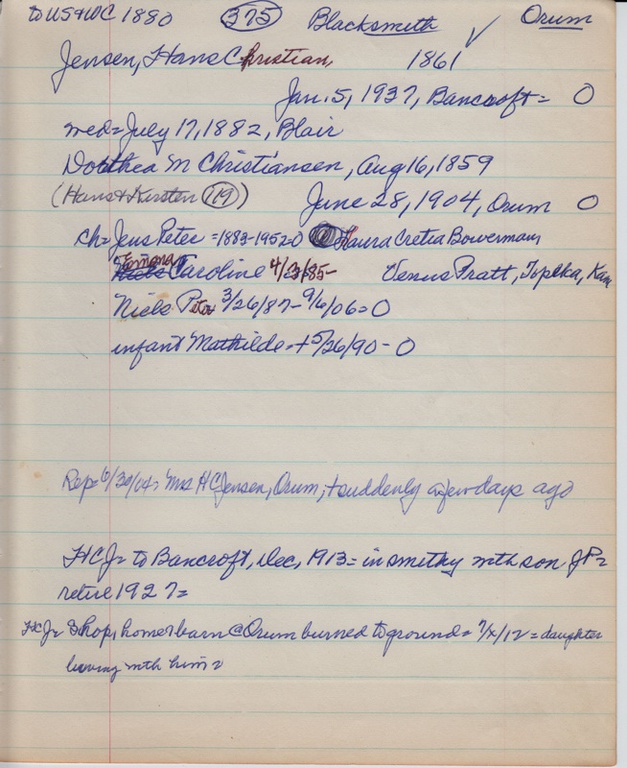 to US+WC 1880 375 Blacksmith ✓ Orum
Jensen, Hans Christian, 1861
Jan. 5, 1937, Bancroft = O
med = July 17, 1882, Blair
Dorthea M Christiansen, Aug 16, 1859
(Hans + Kirsten 119) June 28, 1904, Orum O
ch = Jens Peter = 1883-1952=O Laura Cretia Bowerman
Caroline 4/3/85- Venus Pratt, Topeka, Kan
Niels Peter 3/26/87-9/6/06=O
infant Mathilde + 5/26/90 - O
Rep = 6/30/04 = Mrs HC Jensen, Orum, + suddenly a few days ago
HCJ = to Bancroft, Dec, 1913 = in smithy with son JP =
retire 1927 =
HCJ = Shop, home + barn @ Orum burned to ground = 7/x/12 = daughter
living with him =